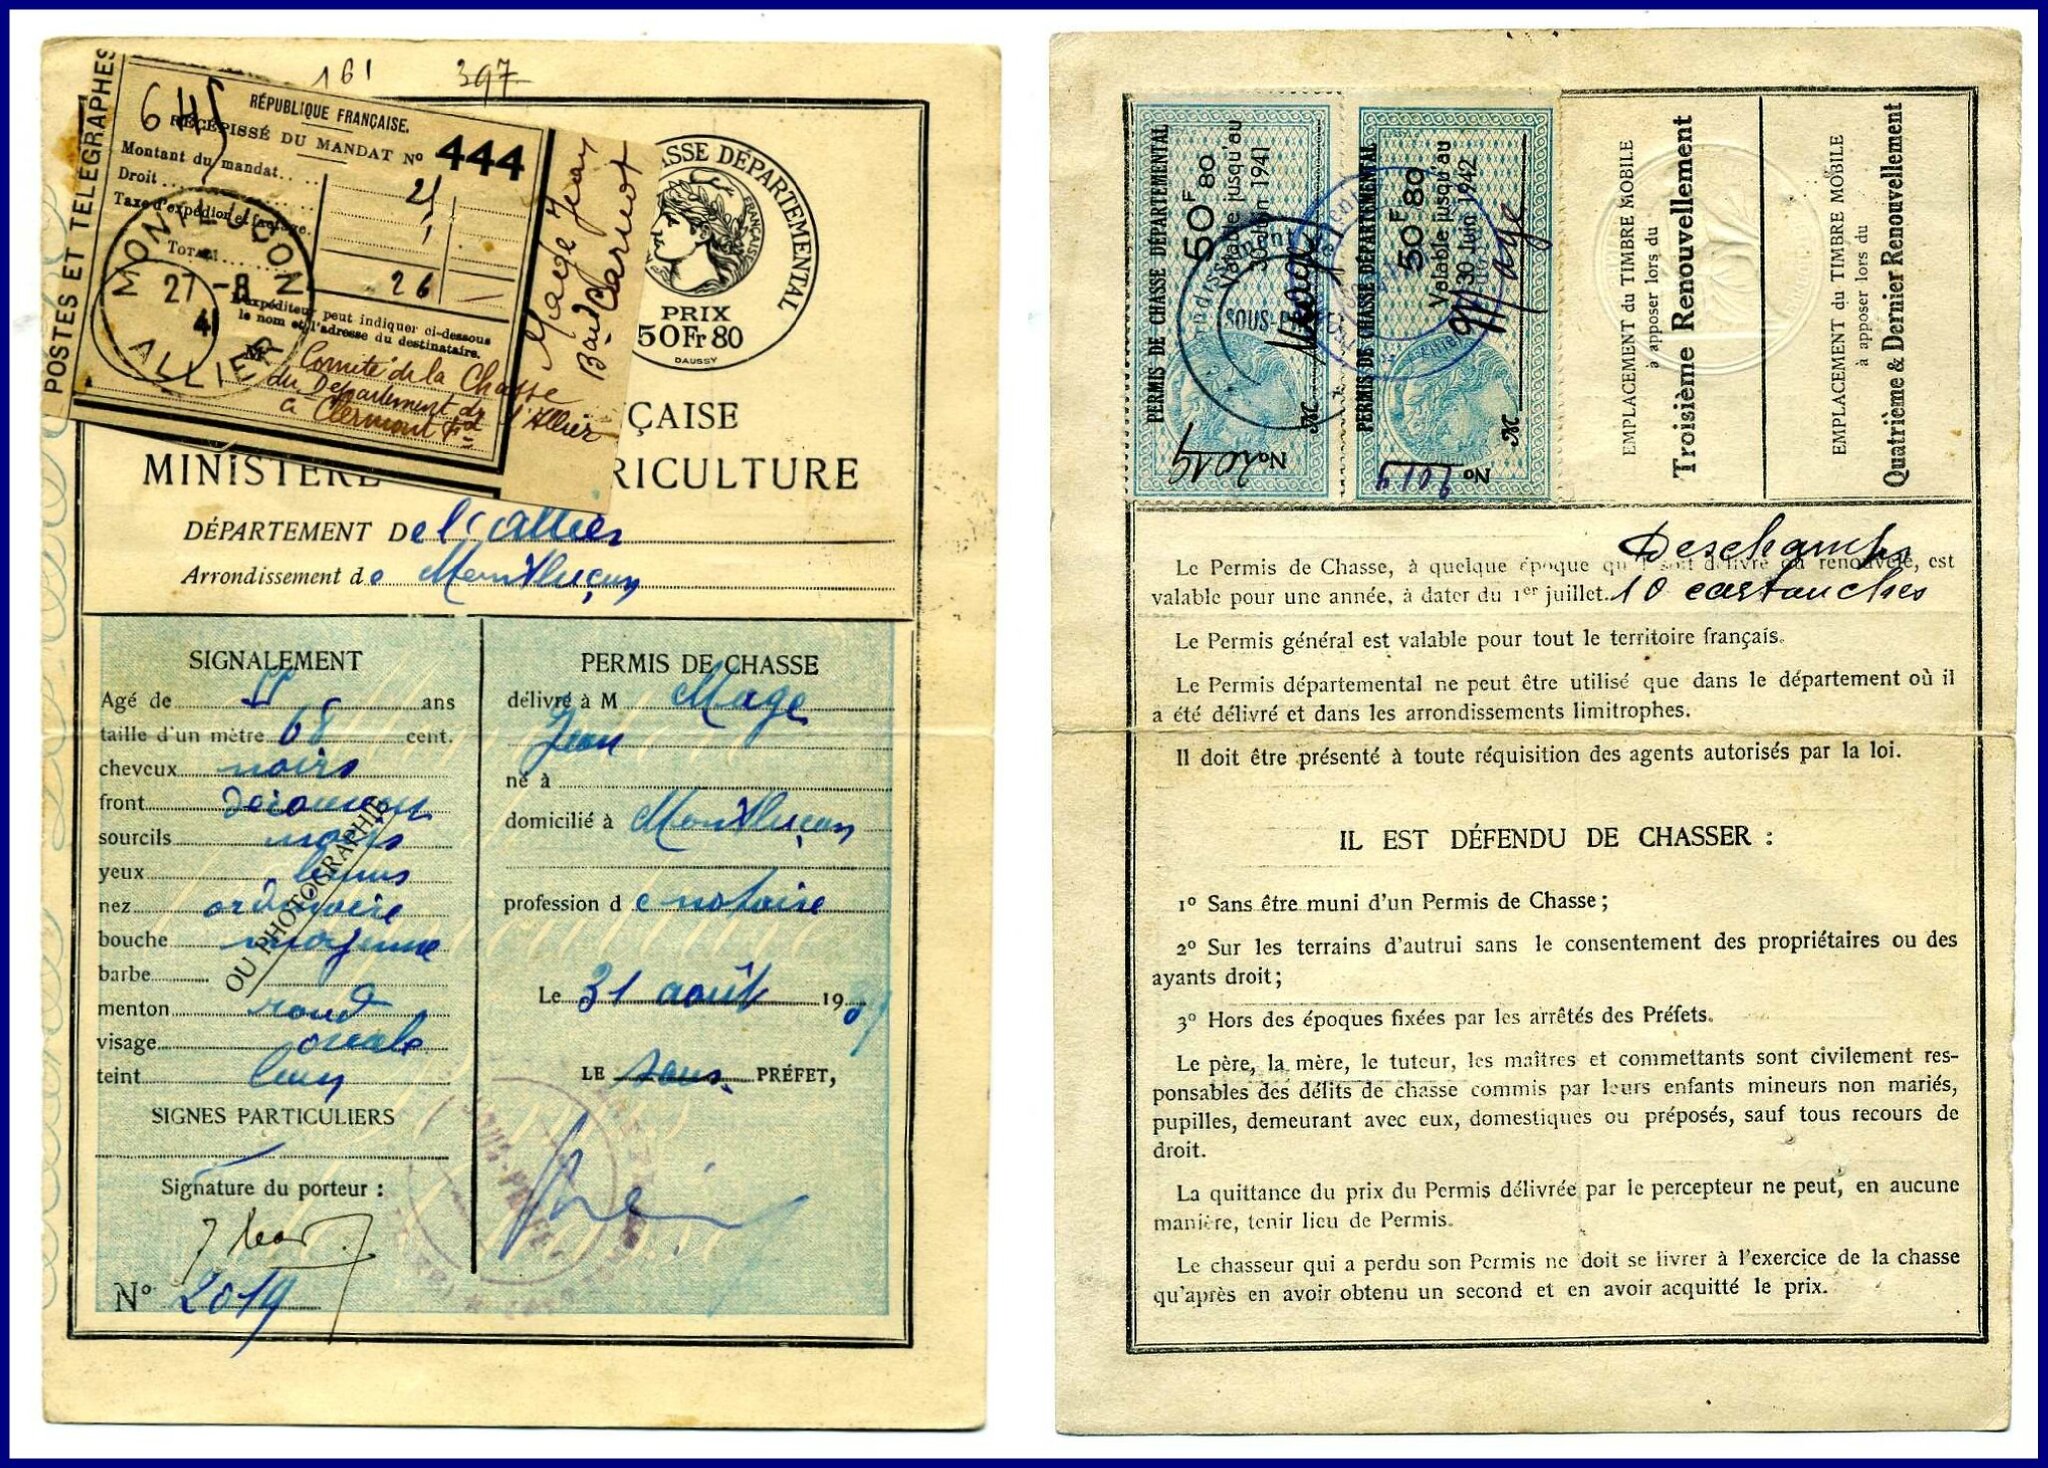 161 397
POSTES ET TÉLÉGRAPHES
RÉPUBLIQUE FRANÇAISE.
RÉCÉPISSÉ DU MANDAT No 444
Montant du mandat....
Droit
Taxe d'expédion et factage.
TOTAL
26
L'expéditeur peut indiquer ci-dessous
le nom et l'adresse du destinataire.
M
Comité de la Chasse
du Département de l'Allier
à Clermont Fd
MONTLUÇON
27-8
41
ALLIER
Mage Jean
Bard Carnot
CHASSE DÉPARTEMENTAL
FRANÇAISE
PRIX
50 Fr 80
DAUSSY
ÇAISE
MINISTÈRE RICULTURE
DÉPARTEMENT De l'allier
Arrondissement de Montluçon
SIGNALEMENT
Agé de 55 ans
taille d'un mètre 68 cent.
cheveux noirs
front
sourcils noirs
yeux
nez ordinaire
bouche moyenne
barbe
menton rond
visage ovale
teint
OU PHOTOGRAPHIE
SIGNES PARTICULIERS
Signature du porteur :
No 2019
PERMIS DE CHASSE
délivré à M Mage
Jean
né à
domicilié à Montluçon
profession de notaire
Le 31 août 1939
LE sous PRÉFET,
SOUS-PRÉFET
PERMIS DE CHASSE DÉPARTEMENTAL
50F 80
Valable jusqu'au
30 Juin 1941
M Mage
No 2019
PERMIS DE CHASSE DÉPARTEMENTAL
50F 80
Valable jusqu'au
30 Juin 1942
M Mage
No 2019
EMPLACEMENT du TIMBRE MOBILE
à apposer lors du
Troisième Renouvellement
EMPLACEMENT du TIMBRE MOBILE
à apposer lors du
Quatrième & Dernier Renouvellement
Deschamps
10 cartouches
Le Permis de Chasse, à quelque époque qu'il soit délivré ou renouvelé, est
valable pour une année, à dater du 1er juillet.
Le Permis général est valable pour tout le territoire français.
Le Permis départemental ne peut être utilisé que dans le département où il
a été délivré et dans les arrondissements limitrophes.
Il doit être présenté à toute réquisition des agents autorisés par la loi.
IL EST DÉFENDU DE CHASSER :
1o Sans être muni d'un Permis de Chasse ;
2o Sur les terrains d'autrui sans le consentement des propriétaires ou des
ayants droit ;
3o Hors des époques fixées par les arrêtés des Préfets.
Le père, la mère, le tuteur, les maîtres et commettants sont civilement res-
ponsables des délits de chasse commis par leurs enfants mineurs non mariés,
pupilles, demeurant avec eux, domestiques ou préposés, sauf tous recours de
droit.
La quittance du prix du Permis délivrée par le percepteur ne peut, en aucune
manière, tenir lieu de Permis.
Le chasseur qui a perdu son Permis ne doit se livrer à l'exercice de la chasse
qu'après en avoir obtenu un second et en avoir acquitté le prix.